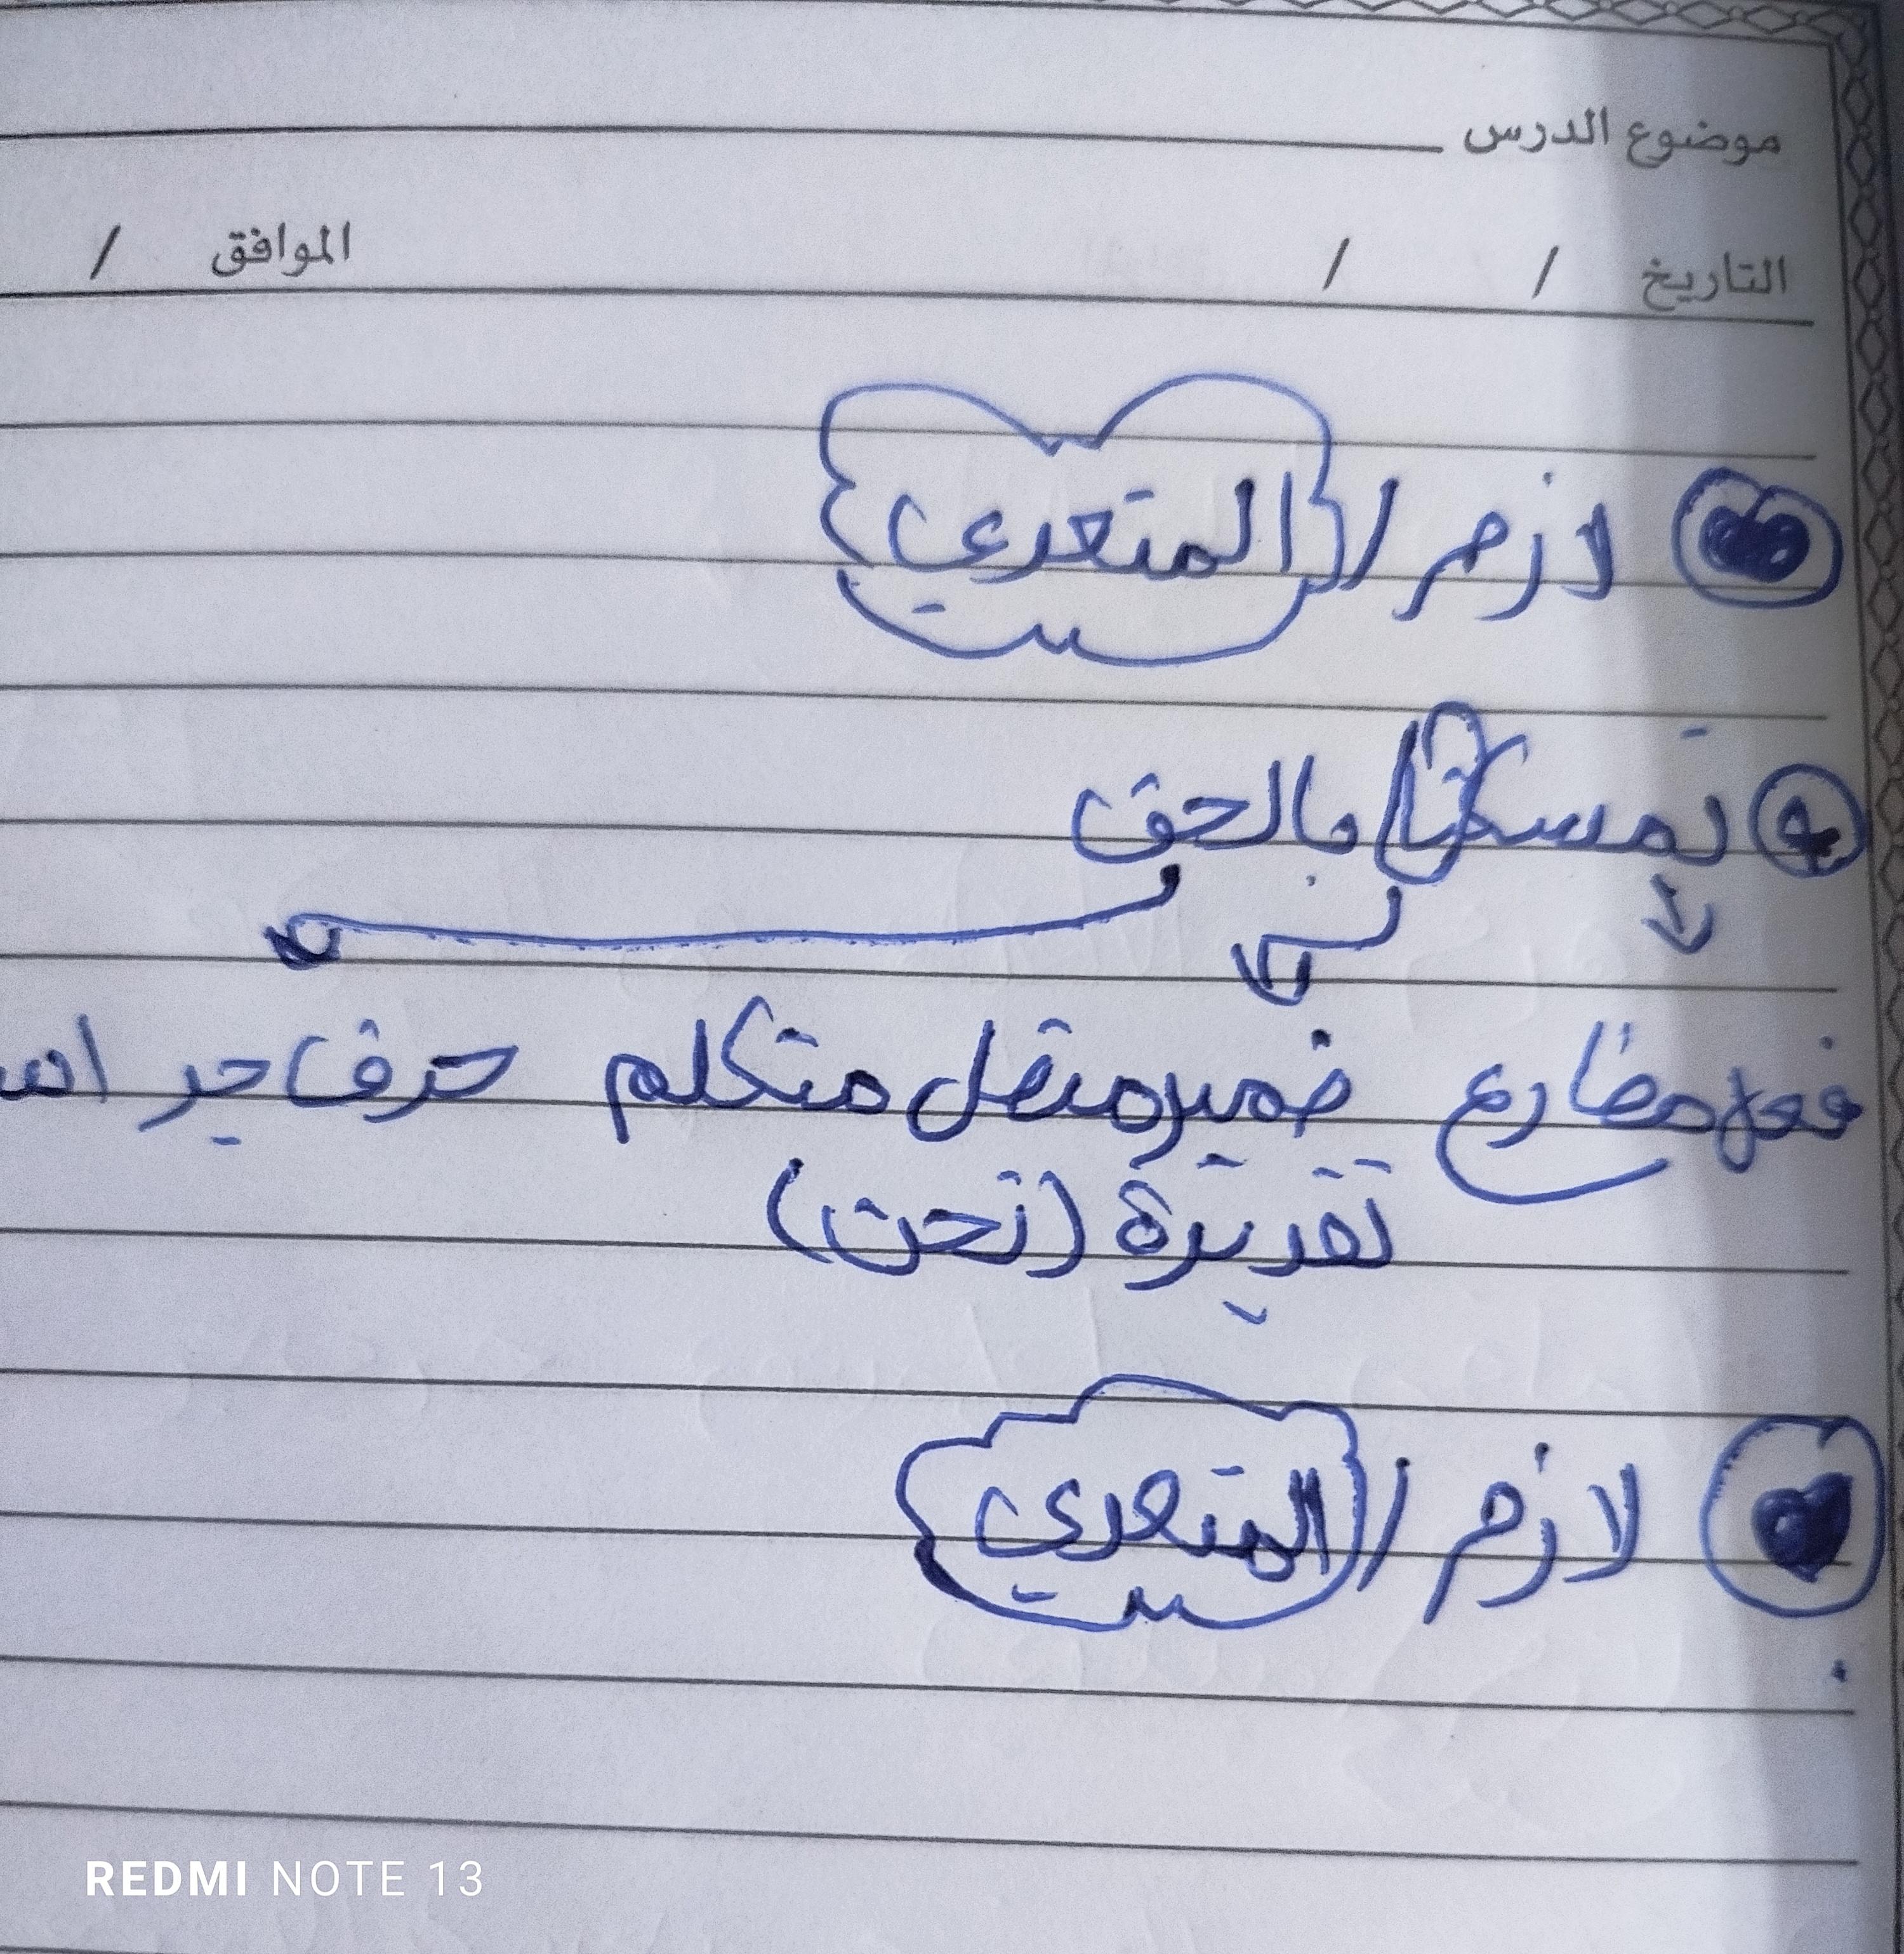 موضوع الدرس
التاريخ / / الموافق /
لازم / المتعدي
تمسكنا بالحق
فعل مضارع ضمير متصل متكلم حرف جر
تقديرة (نحن)
لازم / المتعدي
REDMI NOTE 13